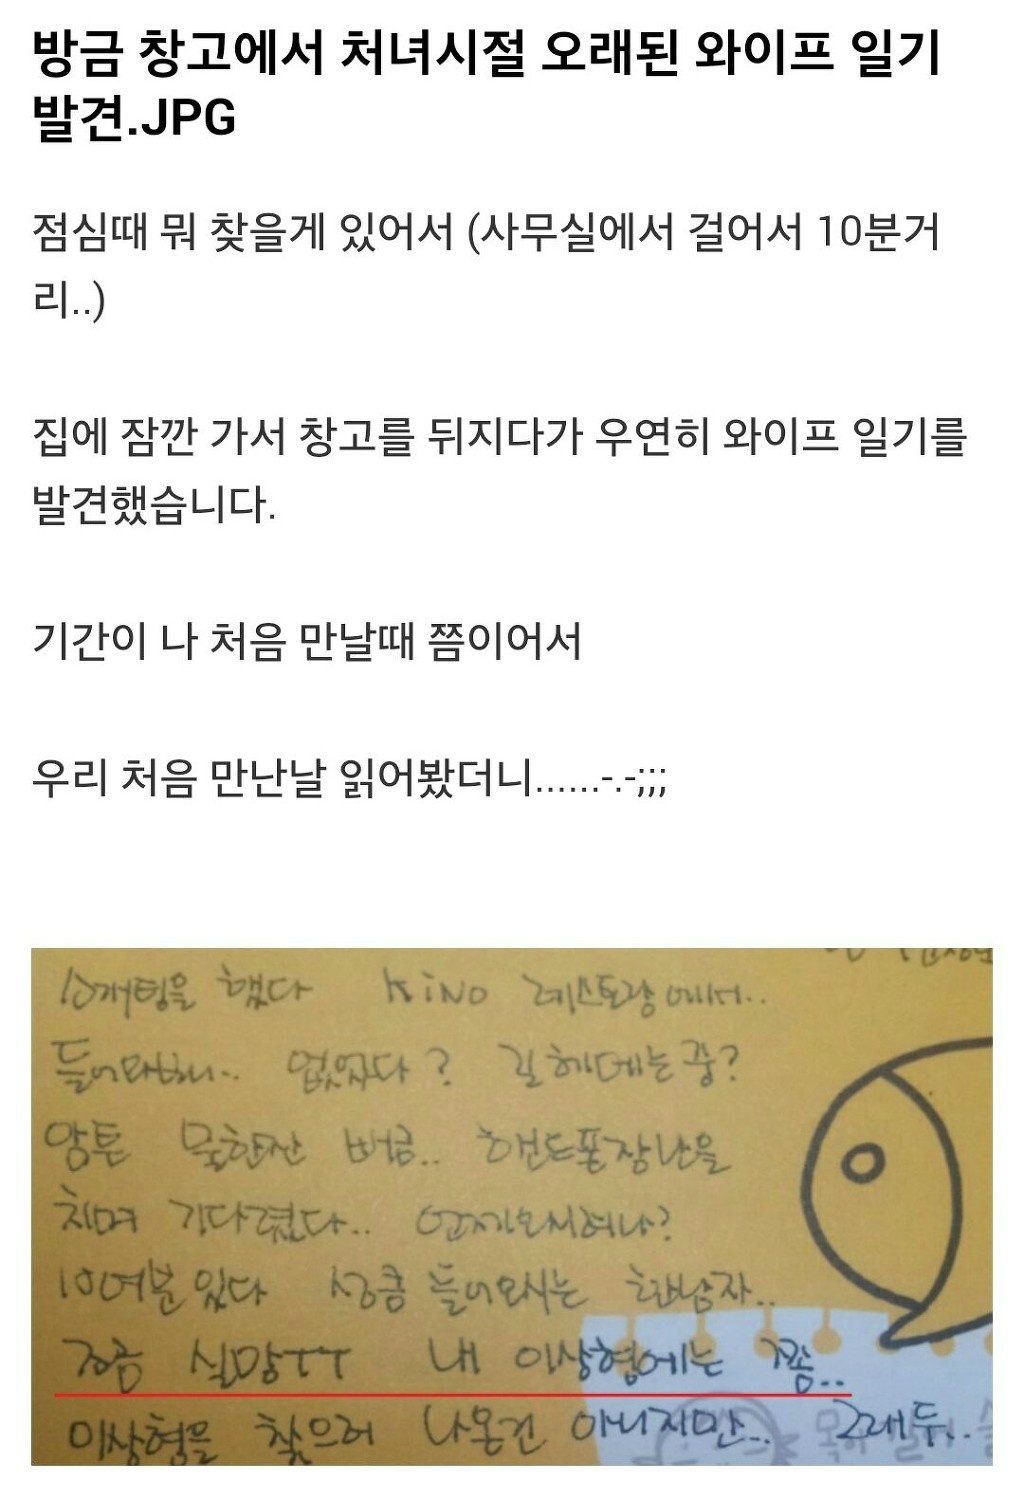 방금 창고에서 처녀시절 오래된 와이프 일기
발견.JPG
점심때 뭐 찾을게 있어서 (사무실에서 걸어서 10분거
리..)
집에 잠깐 가서 창고를 뒤지다가 우연히 와이프 일기를
발견했습니다.
기간이 나 처음 만날때 쯤이어서
우리 처음 만난날 읽어봤더니......-.-;;;
소개팅을 했다 KiNo 레스토랑에서..
들어와보니.. 없었다? 길 헤메는 중?
암튼 물한잔 버큼.. 핸드폰장난을
치며 기다렸다.. 언제오시려나?
10여분 있다 성큼 들어오시는 한남자..
쪼금 실망ㅜㅜ 내 이상형에는 쫌..
이상형을 찾으러 나온건 아니지만.. 그래두..